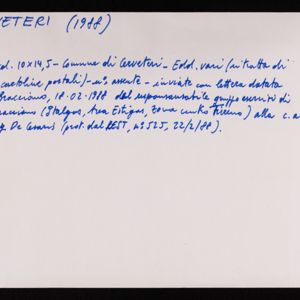 VETERI (1988)
cd. 10x14,5 - Comune di Cerveteri - Edd. vari (si tratta di
cartoline postali) - n° assente - inviate con lettera datata
Bracciano, 18-02-1988 dal responsabile gruppo esercizi di
(Italgas, Area Estigas, zona Tirreno) alla c.a.
De Cesaris (prot. dal REST, n° 525, 22/2/88).